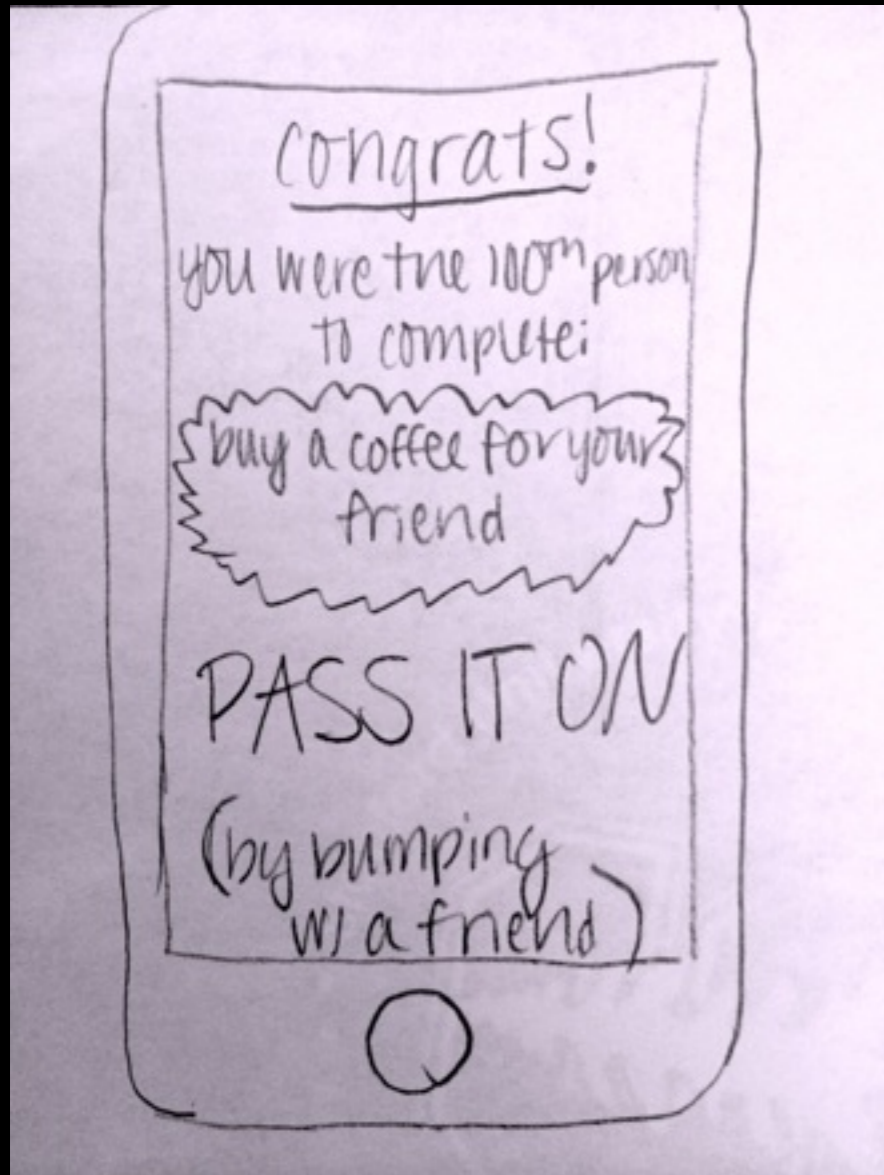 congrats!
you were the 100th person
to complete:
buy a coffee for your
friend
PASS IT ON
(by bumping
w/ a friend)